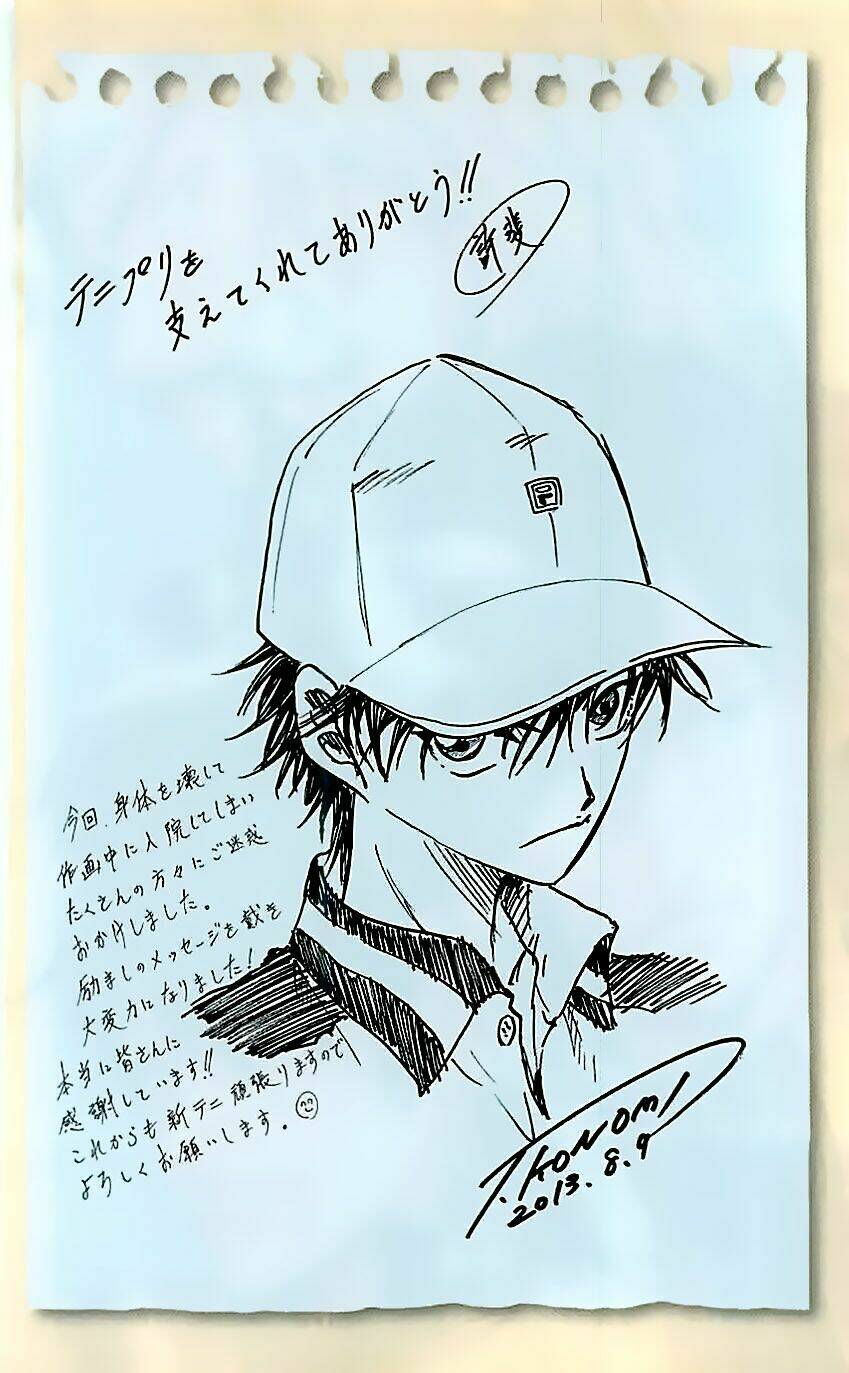 テニプリを
支えてくれてありがとう!!
許斐
今回、身体を壊して
作画中に入院してしまい
たくさんの方々にご迷惑
おかけしました。
励ましのメッセージを戴き
大変力になりました!
本当に皆さんに
感謝しています!!
これからも新テニ頑張りますので
よろしくお願いします。
T.KONOMI
2013.8.9